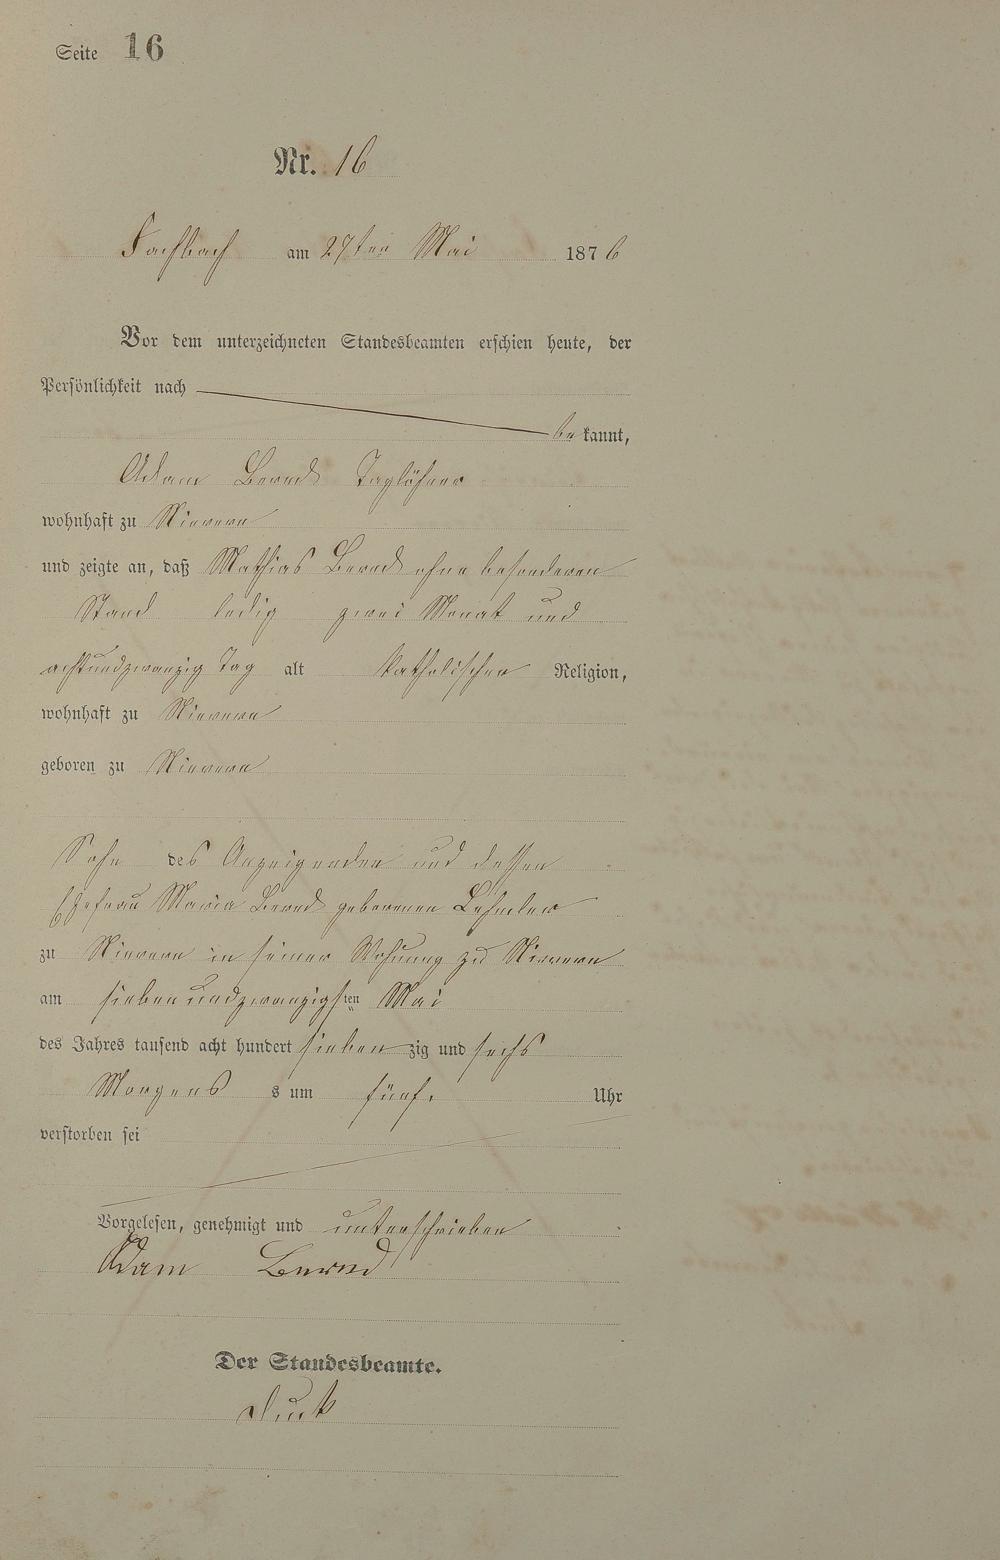 Seite 16
Nr. 16
Fachbach am 27ten Mai 1876
Vor dem unterzeichneten Standesbeamten erschien heute, der
Persönlichkeit nach
be kannt,
Adam Bernd Taglöhner
wohnhaft zu Nievern
und zeigte an, daß Mathias Bernd ohne besonderen
Stand ledig zwei Monat und
achtundzwanzig Tag alt katholischer Religion,
wohnhaft zu Nievern
geboren zu Nievern
Sohn des Anzeigenden und dessen
Ehefrau Maria Bernd geborenen
zu Nievern in seiner Wohnung zu Nievern
am siebenundzwanzigsten Mai
des Jahres tausend acht hundert sieben zig und sechs
Morgens s um fünf Uhr
verstorben sei
Vorgelesen, genehmigt und unterschrieben
Adam Bernd
Der Standesbeamte.